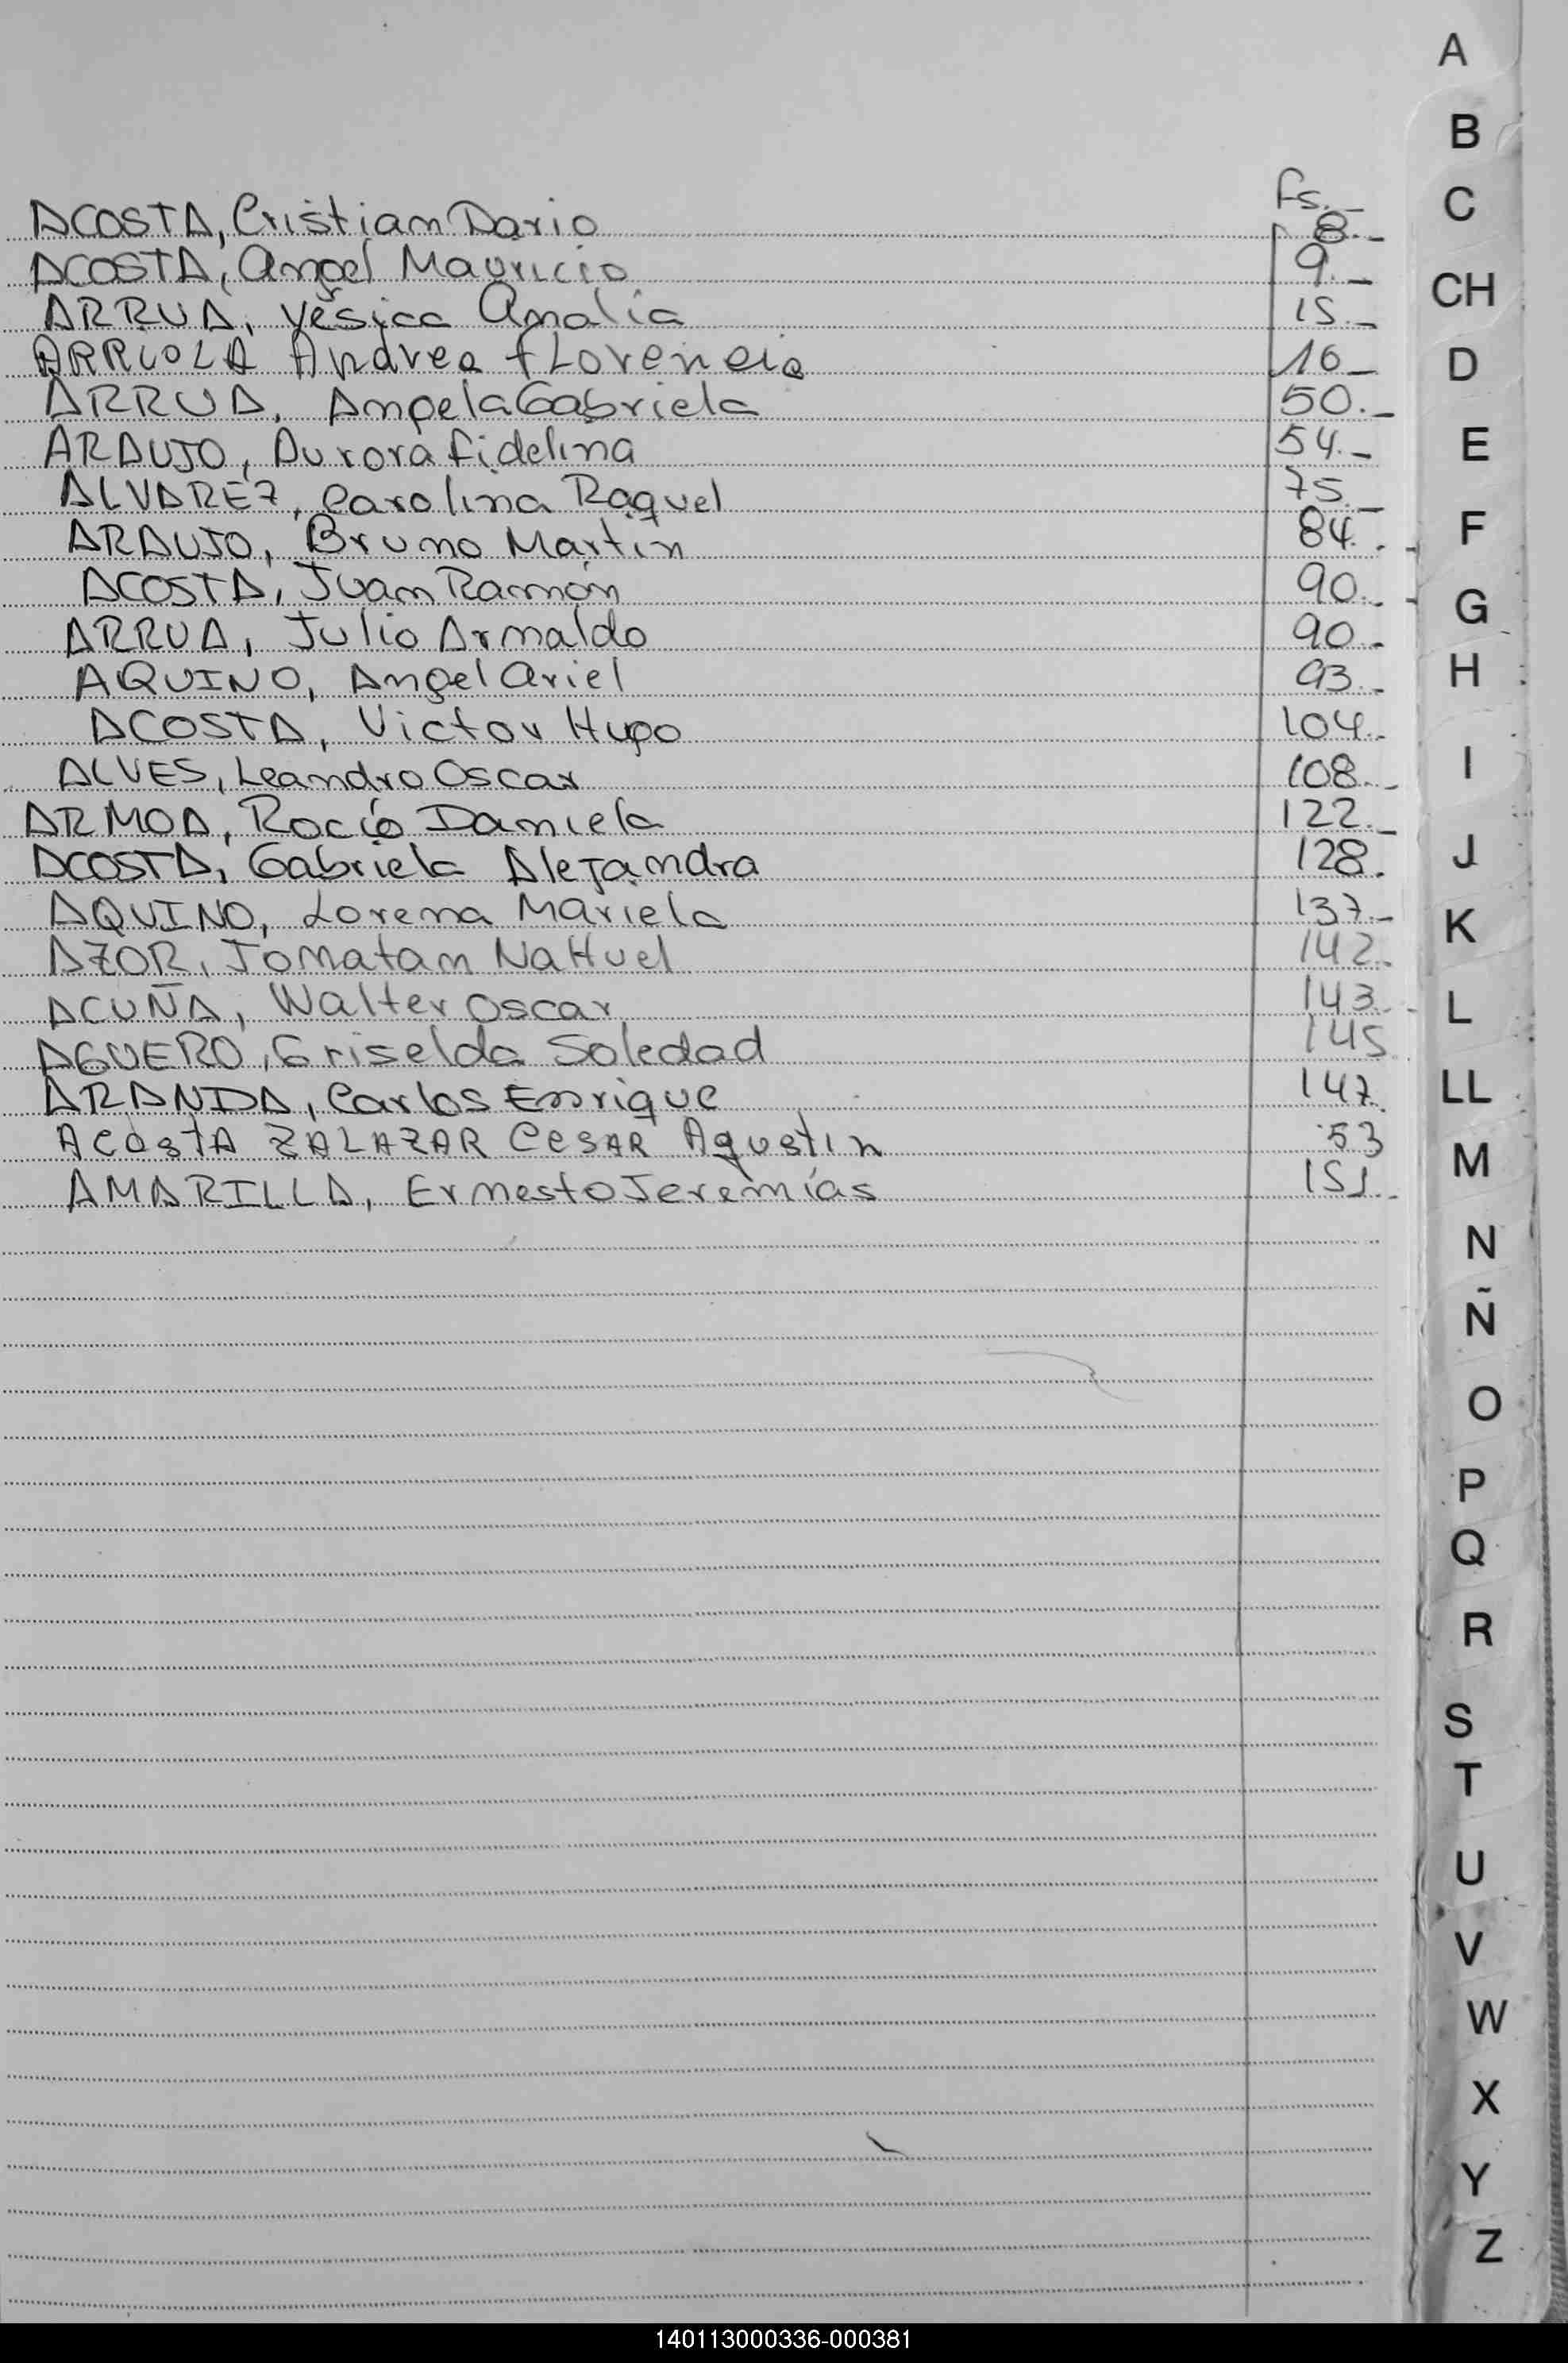 Fs.-
ACOSTA, Cristian Dario 8.-
ACOSTA, Angel Mauricio 9.-
ARRUA, Yésica Analia 15.-
ARRIOLA Andrea FLorencia 16-
ARRUA, Angela Gabriela 50.-
ARAUJO, Aurora Fidelina 54.-
ALVAREZ, Carolina Raquel 75.-
ARAUJO, Bruno Martin 84.-
ACOSTA, Juan Ramón 90.-
ARRUA, Julio Arnaldo 90.-
AQUINO, Angel Ariel 93.-
ACOSTA, Victor Hugo 104.-
ALVES, Leandro Oscar 108.-
ARMOA, Rocío Daniela 122.-
ACOSTA, Gabriela Alejandra 128.
AQUINO, Lorena Mariela 137.-
AZOR, Jonatan NaHuel 142.
ACUÑA, Walter Oscar 143.-
AGUERO, Griselda Soledad 145
ARANDA, Carlos Enrique 147.
ACOSTA ZALAZAR CESAR Agustin 53
AMARILLA, Ernesto Jeremías 151.-
A
B
C
CH
D
E
F
G
H
I
J
K
L
LL
M
N
Ñ
O
P
Q
R
S
T
U
V
W
X
Y
Z
140113000336-000381